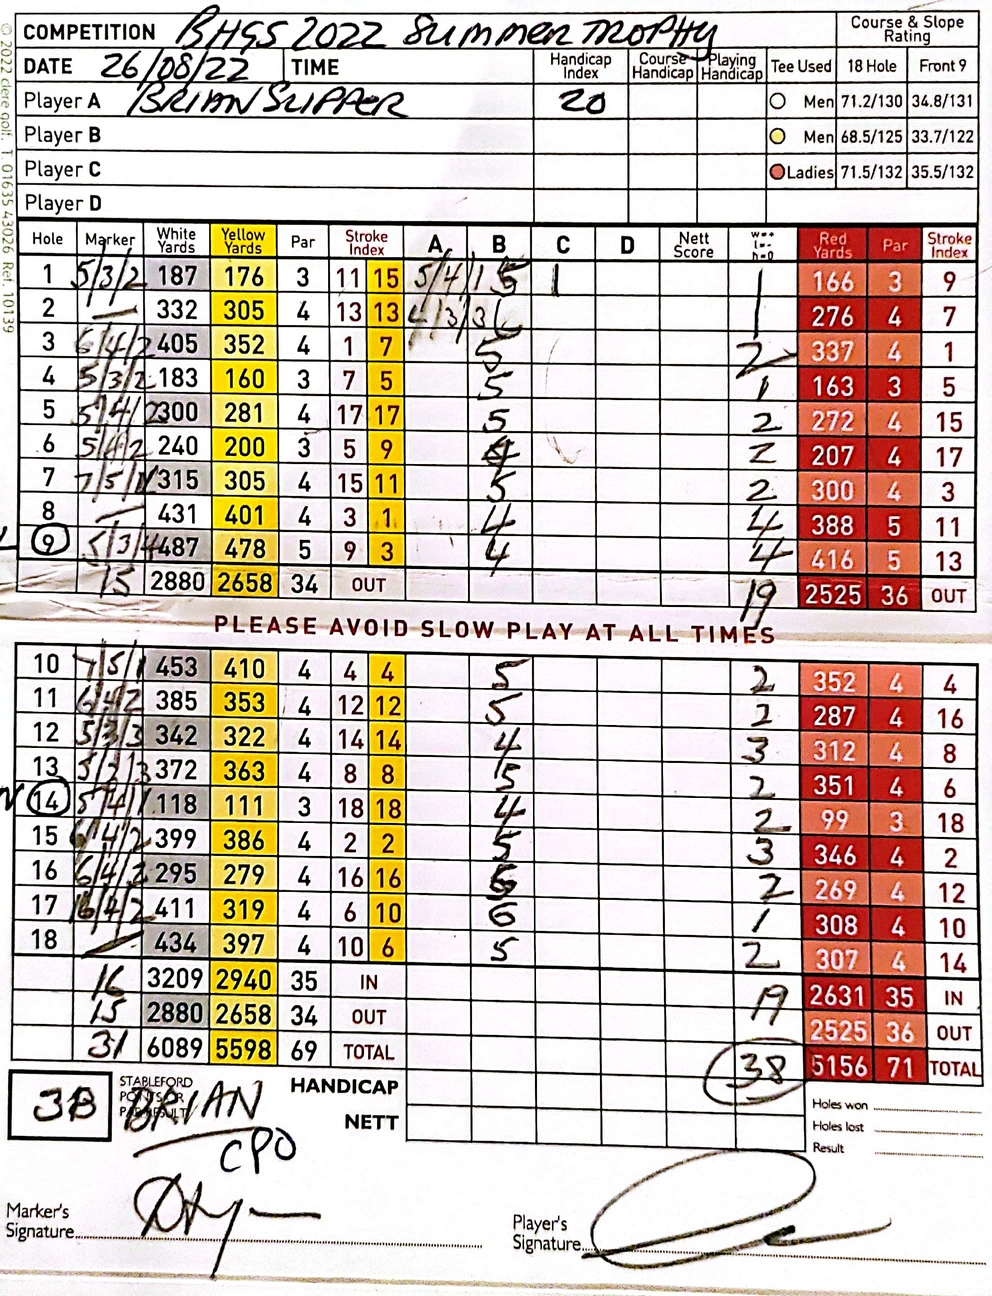 COMPETITION BHGS 2022 Summer TROPHY Course & Slope Rating
DATE 26/08/22 TIME Handicap Index Course Handicap Playing Handicap Tee Used 18 Hole Front 9
Player A BRIAN SLIPPER 20 Men 71.2/130 34.8/131
Player B Men 68.5/125 33.7/122
Player C Ladies 71.5/132 35.5/132
Player D
Hole Marker White Yards Yellow Yards Par Stroke Index A B C D Nett Score w=+ l=- h=0 Red Yards Par Stroke Index
1 5/3/2 187 176 3 11 15 5/4/1 5 1 1 166 3 9
2 — 332 305 4 13 13 4/3/3 6 1 276 4 7
3 6/4/2 405 352 4 1 7 5 2 337 4 1
4 5/3/2 183 160 3 7 5 5 1 163 3 5
5 5/4/2 300 281 4 17 17 5 2 272 4 15
6 5/4/2 240 200 3 5 9 4 2 207 4 17
7 7/5/1 315 305 4 15 11 5 2 300 4 3
8 — 431 401 4 3 1 4 4 388 5 11
9 5/3/4 487 478 5 9 3 4 4 416 5 13
15 2880 2658 34 OUT 19 2525 36 OUT
PLEASE AVOID SLOW PLAY AT ALL TIMES
10 7/5/1 453 410 4 4 4 5 2 352 4 4
11 6/4/2 385 353 4 12 12 5 2 287 4 16
12 5/3/3 342 322 4 14 14 4 3 312 4 8
13 5/2/3 372 363 4 8 8 5 2 351 4 6
N 14 5/4/1 118 111 3 18 18 4 2 99 3 18
15 6/4/2 399 386 4 2 2 5 3 346 4 2
16 6/4/2 295 279 4 16 16 5 2 269 4 12
17 6/4/2 411 319 4 6 10 6 1 308 4 10
18 — 434 397 4 10 6 5 2 307 4 14
16 3209 2940 35 IN 19 2631 35 IN
15 2880 2658 34 OUT 2525 36 OUT
31 6089 5598 69 TOTAL 38 5156 71 TOTAL
38 STABLEFORD POINTS OR PAR RESULT BRIAN HANDICAP
CPO NETT
Holes won
Holes lost
Result
Marker's Signature
Player's Signature
© 2022 clere golf. T. 01635 43026 Ref. 10139